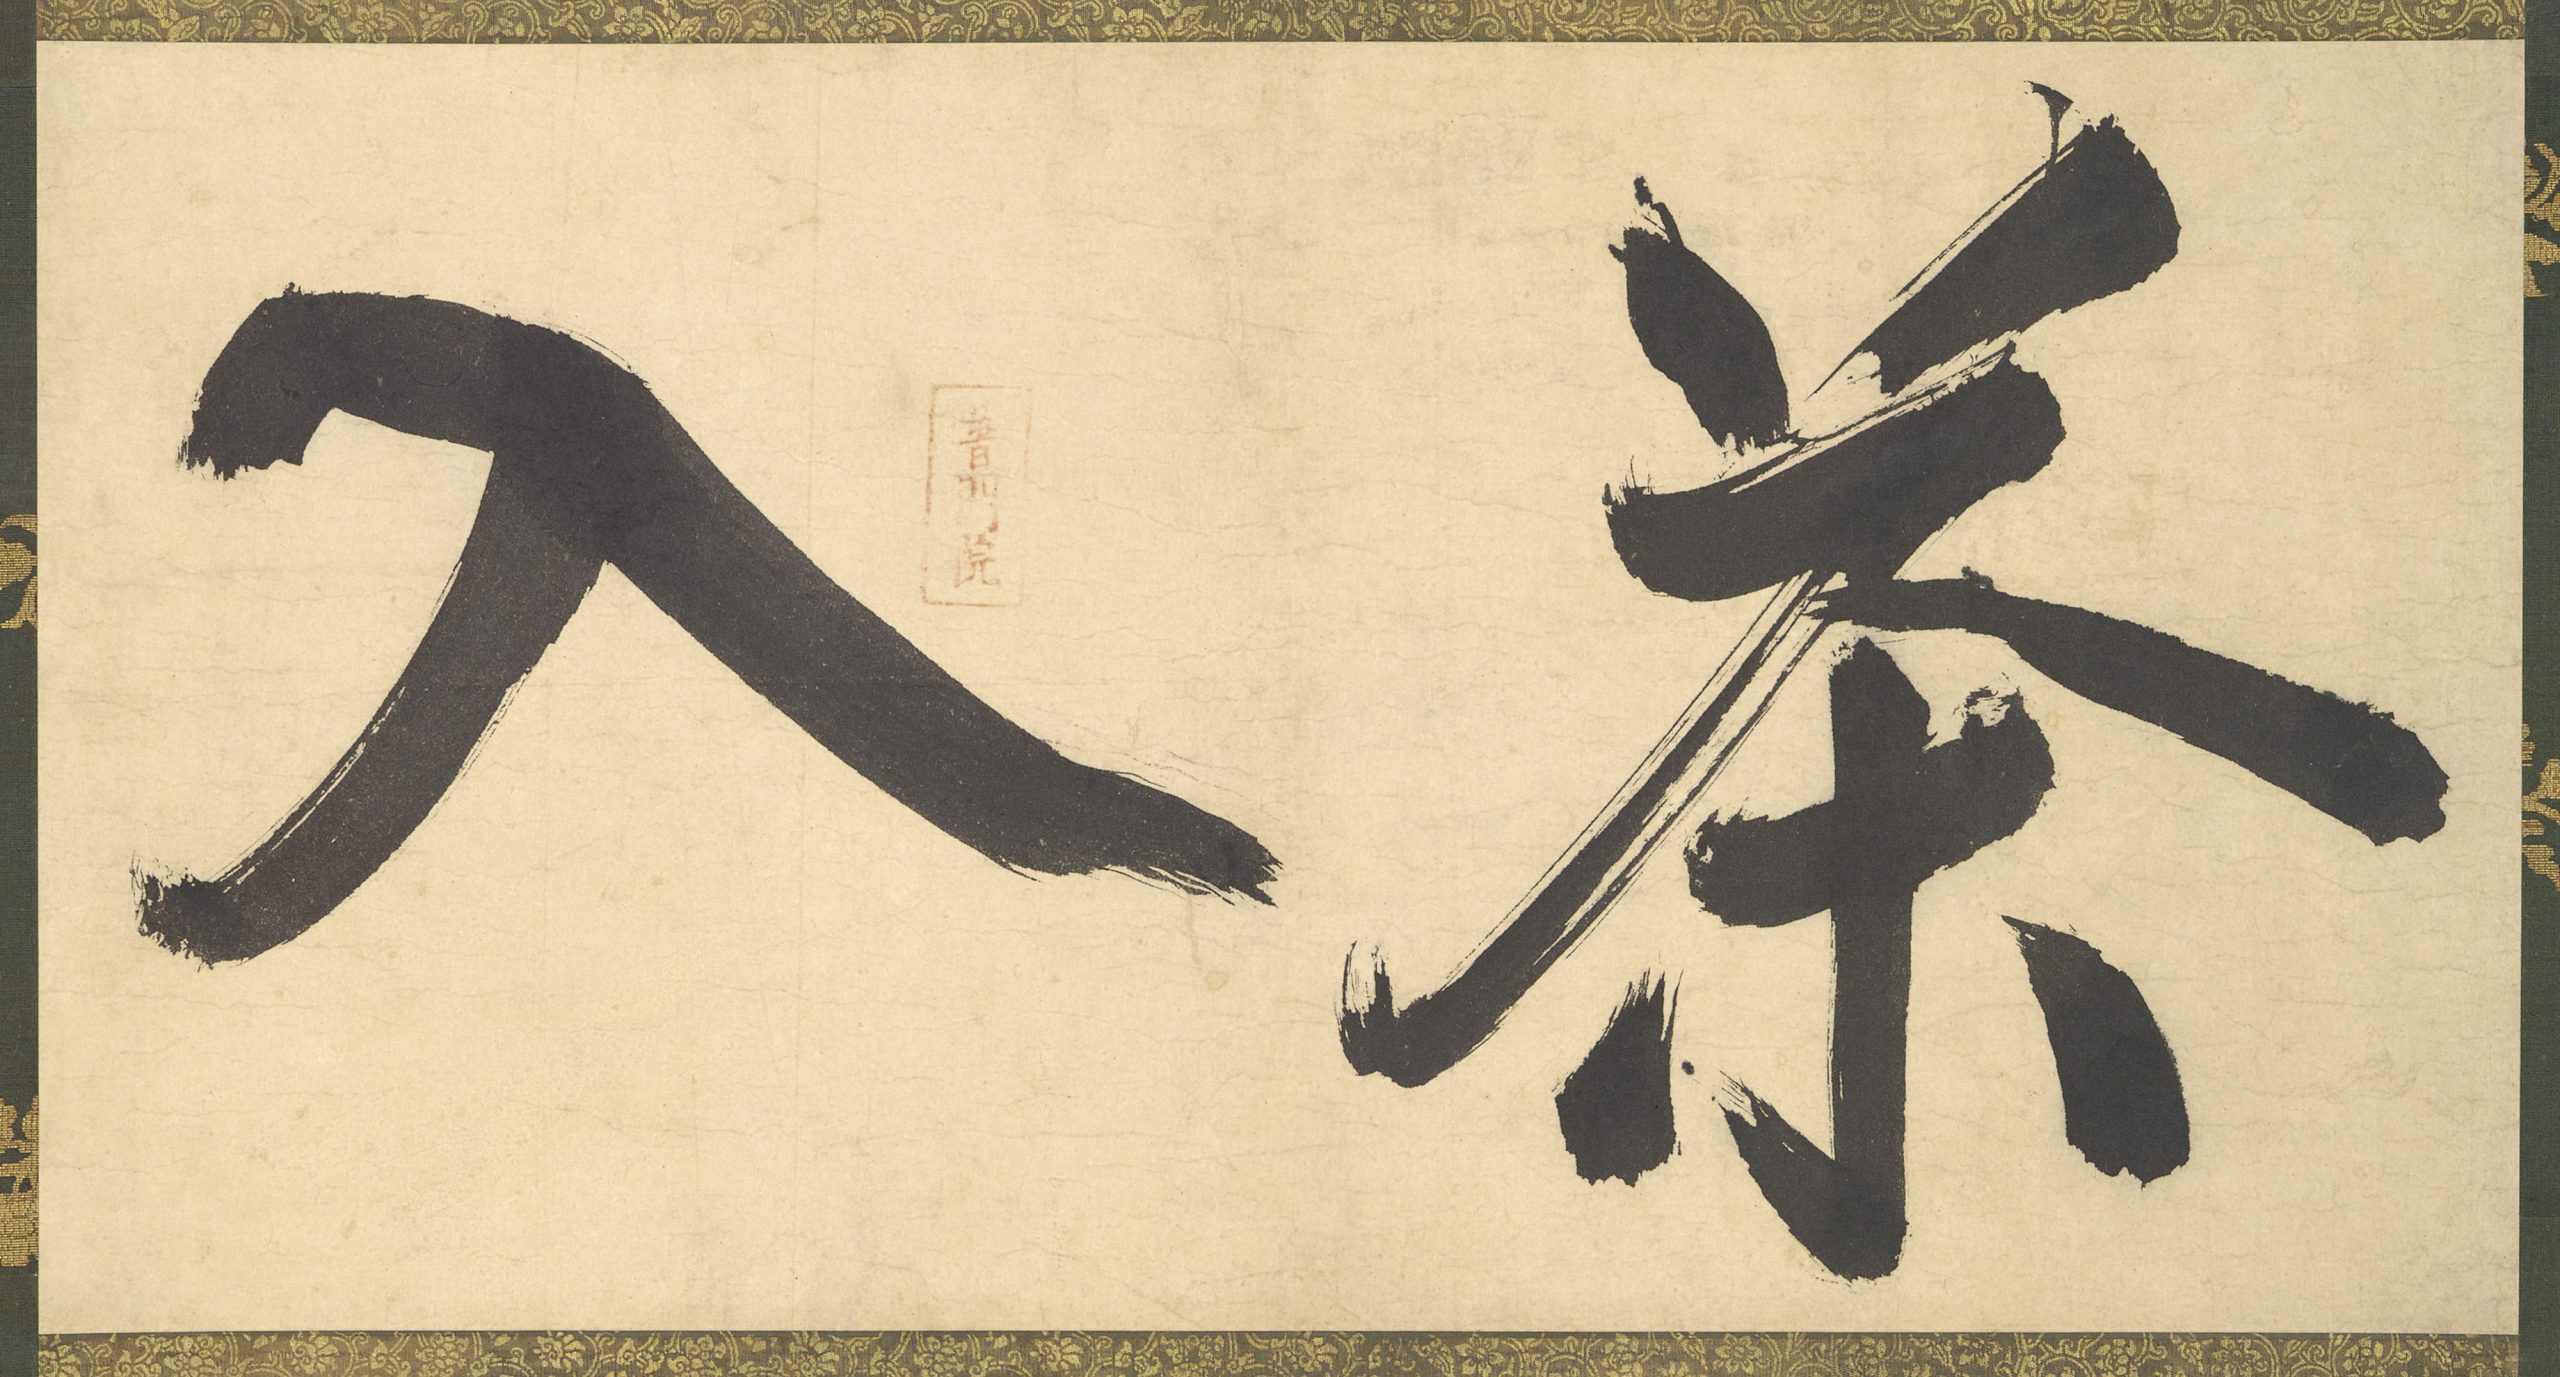 茶入
普門院